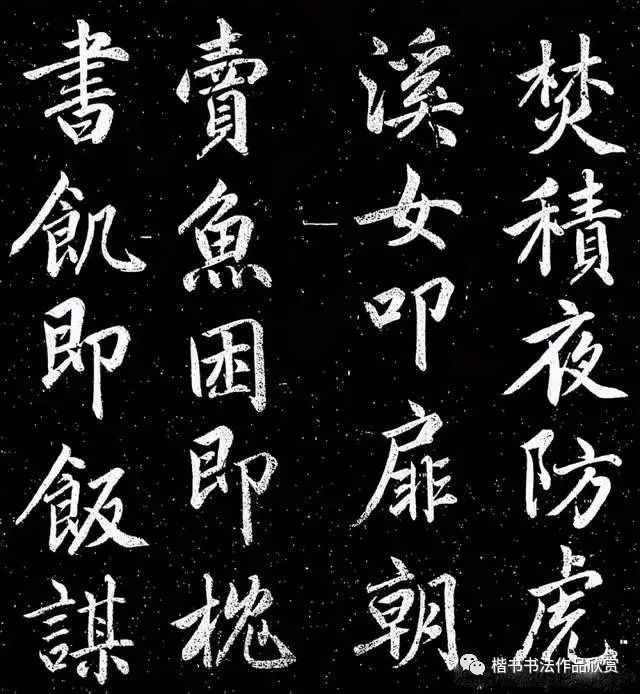 焚積夜防虎
溪女叩扉朝
賣魚困即枕
書飢即飯謀
楷书书法作品欣赏